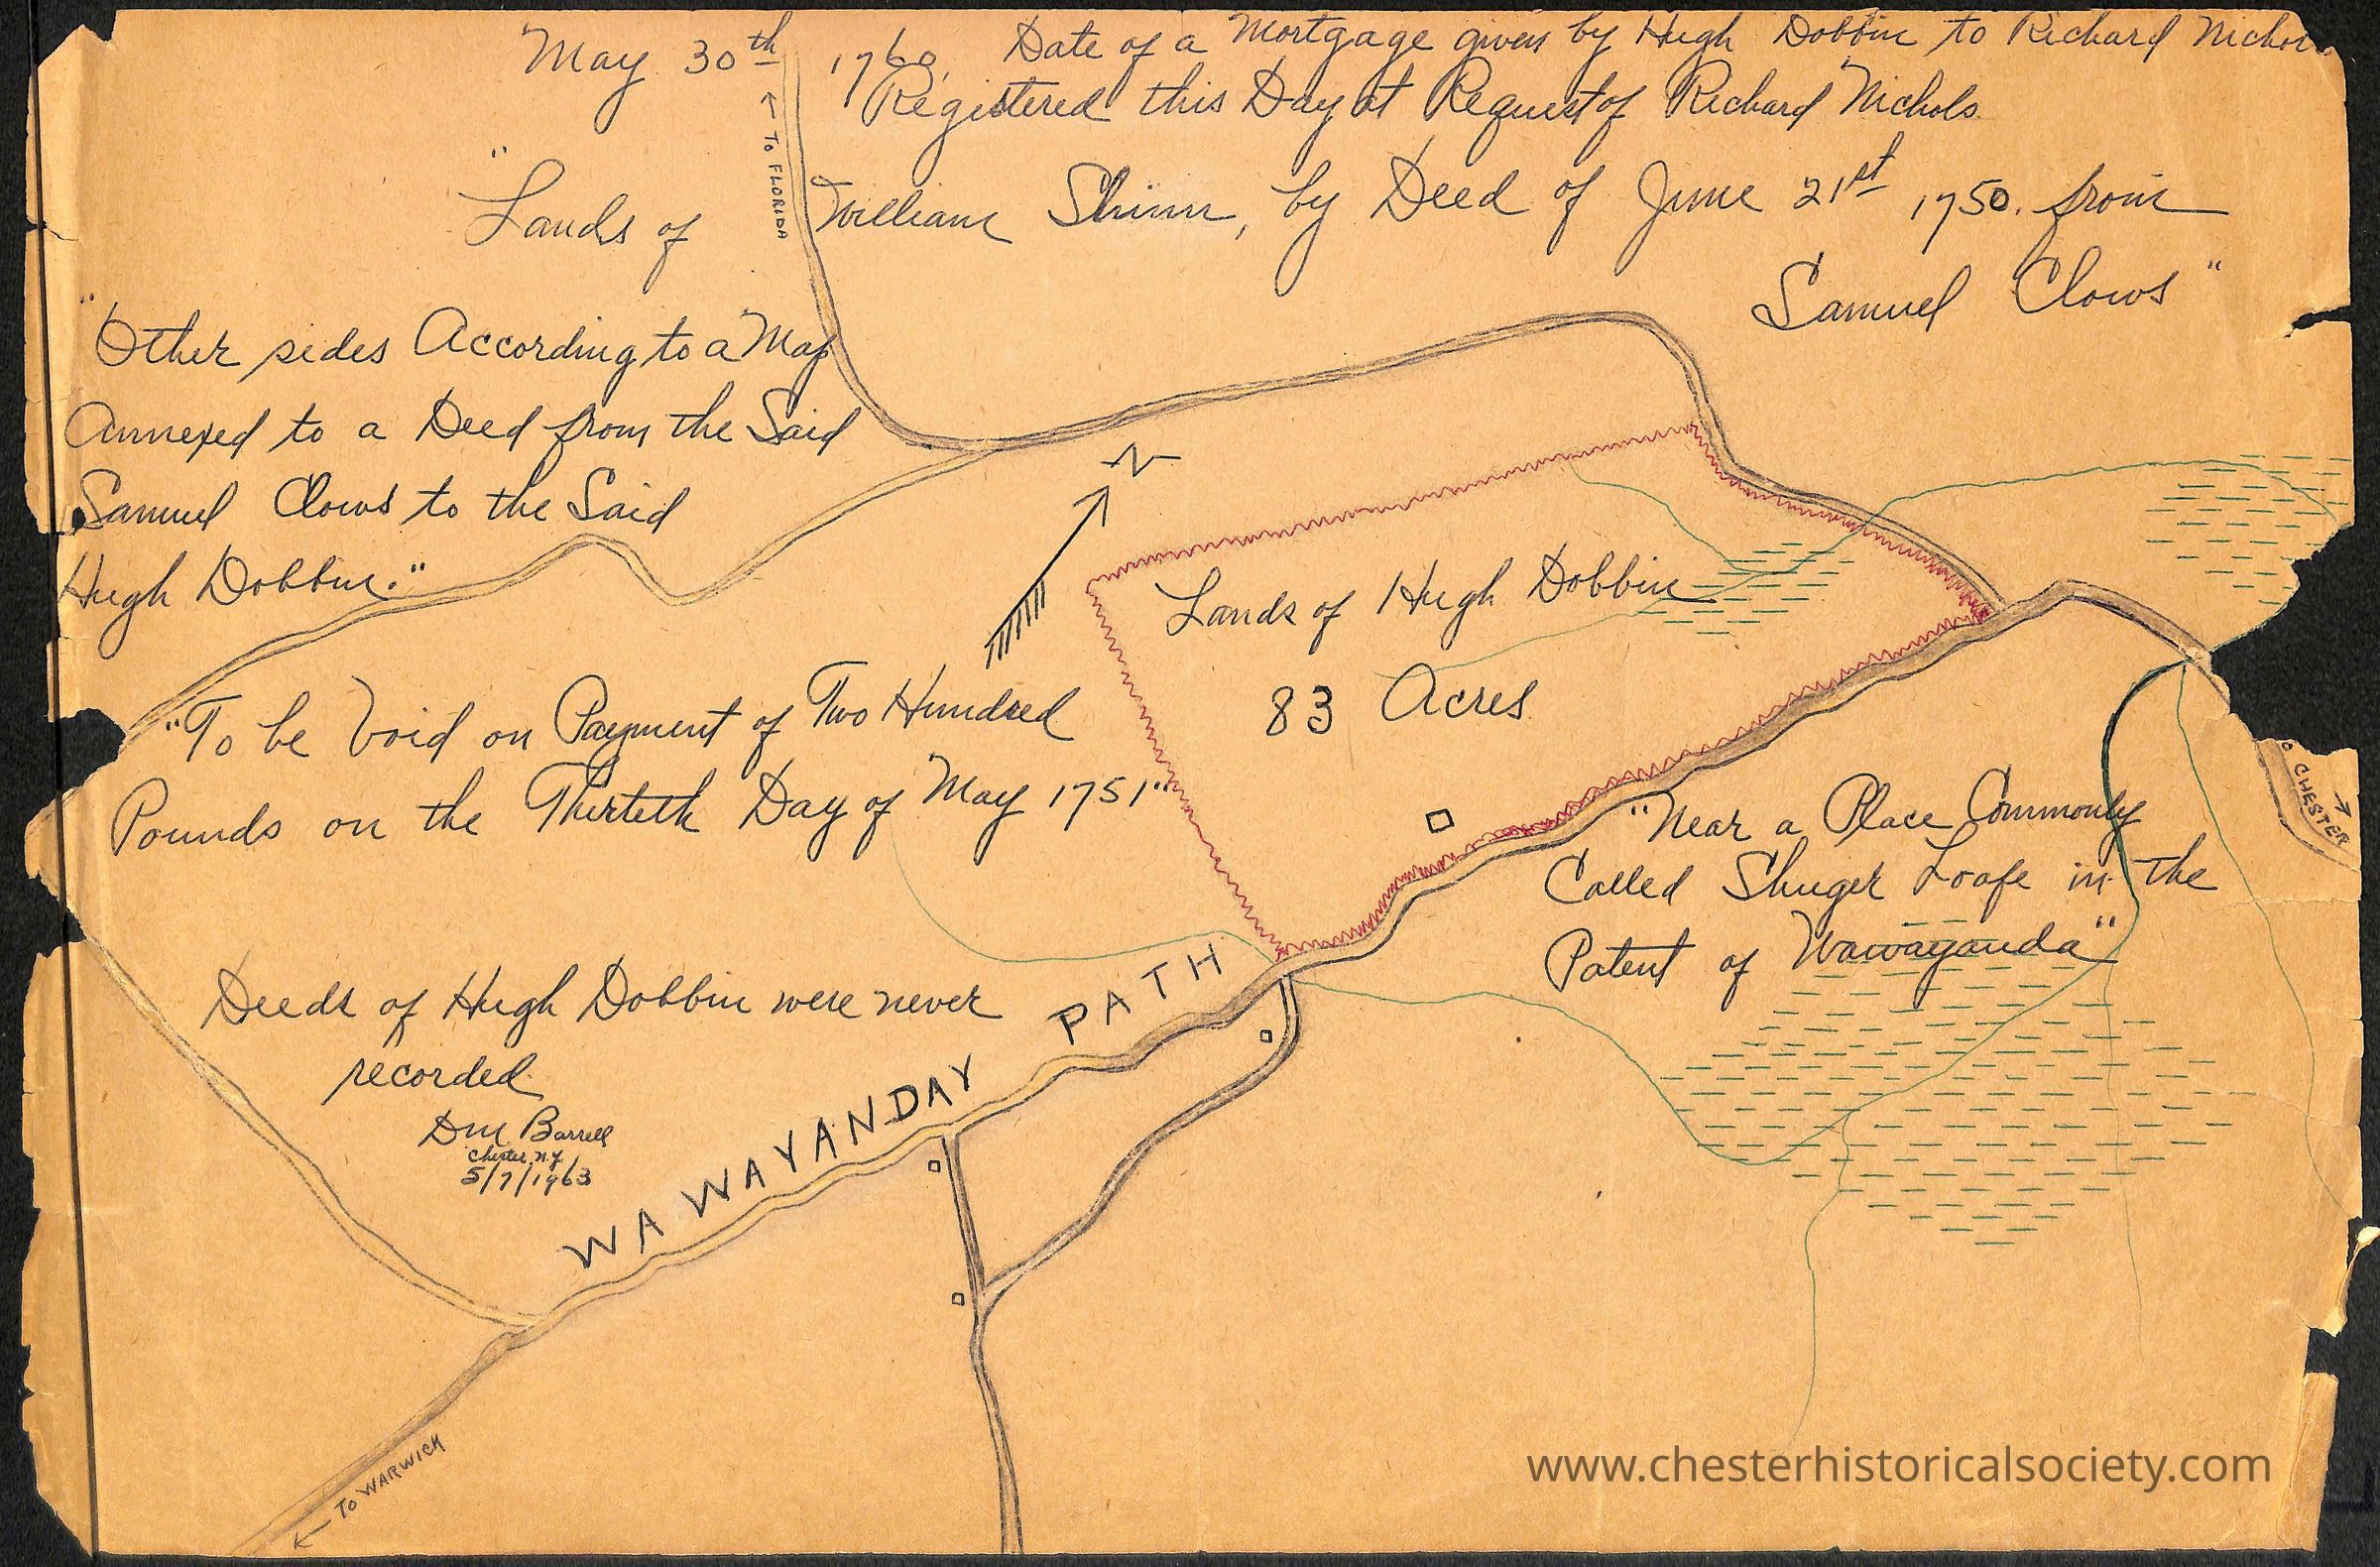 May 30th 1760. Date of a Mortgage given by Hugh Dobbin to Richard Nichols
Registered this Day at Request of Richard Nichols.
← To FLORIDA
"Lands of William Shinn, by Deed of June 21st 1750. from
Samuel Clows"
"Other sides According to a Map
Annexed to a Deed from the Said
Samuel Clows to the Said
Hugh Dobbin."
N
Lands of Hugh Dobbin
83 Acres
"To be Void on Payment of Two Hundred
Pounds on the Thirteth Day of May 1751"
To CHESTER →
"Near a Place Commonly
Called Shuger Loafe in the
Patent of Wawayanda"
Deeds of Hugh Dobbin were never
recorded
DM Barrell
Chester, N.Y.
5/7/1963
WAWAYANDAY PATH
← To WARWICK
www.chesterhistoricalsociety.com